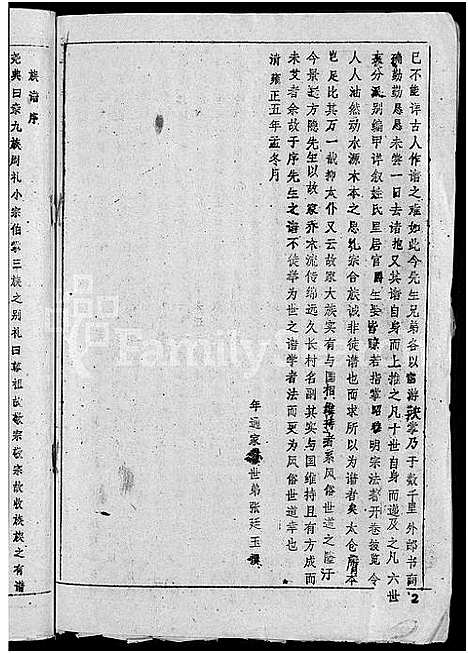 已不能详古人作谱之难如此今先生兄弟各以宦游鞅掌乃于数千里外邮书商
确勤勤恳恳未尝一日去诸抱又其谱自身而上推之凡十世自身而递及之凡六世
支分派别编甲详叙姓氏里居官爵生娶皆瞭若指掌昭穆明宗法者开卷披览令
人人油然动水源木本之思礼宗合族诚非徒谱也而求所以为谱者矣太仓
岂足比其万一哉抑太仆又云故家大族实有与国相维持者系风俗世道之隆汙
今景 方隐先生以故家乔木流传绵远久长村名副其实与国维持且有方成而
未艾者余故于序先生之谱不徒举为世之谱学者法而更为风俗世道幸也
清雍正五年孟冬月
年通家世弟张廷玉撰
族谱序
尧典曰亲九族周礼小宗伯掌三族之别礼曰尊祖故敬宗敬宗故收族族之有谱
2
FamilyS